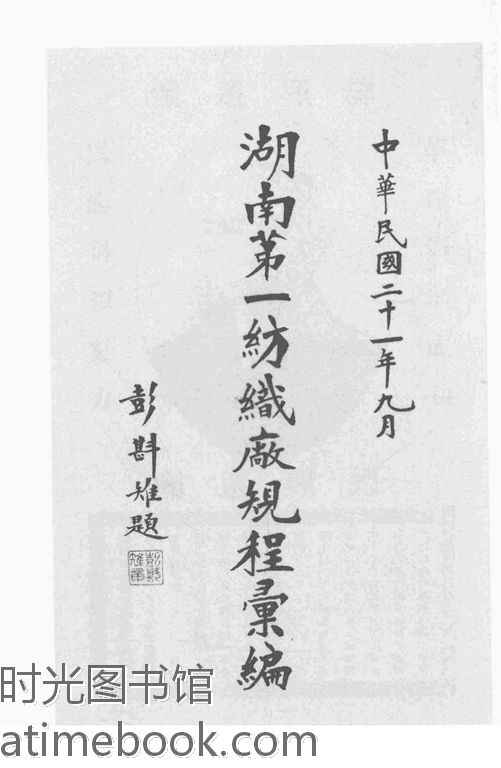 中華民國二十一年九月
湖南第一紡織廠規程彙編
彭斟雉題
时光图书馆
atimebook.com